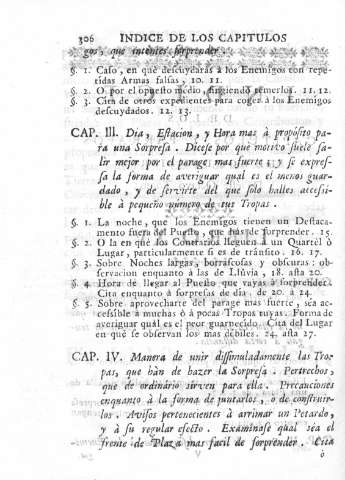 306 INDICE DE LOS CAPITULOS
gos, que intentes sorprender.
§. 1. Caso, en que descuydarás à los Enemigos con repe-
tidas Armas falsas, 10. 11.
§. 2. O por el opuesto medio, fingiendo temerlos. 11. 12.
§. 3. Cita de otros expedientes para coger à los Enemigos
descuydados. 12. 13.
CAP. III. Dia, Estacion, y Hora mas à propósito pa-
ra una Sorpresa. Dicese por què motivo suele sa-
lir mejor por el parage mas fuerte; y se expres-
sa la forma de averiguar qual es el menos guar-
dado, y de servirte del que solo halles accessi-
ble à pequeño número de tus Tropas.
§. 1. La noche, que los Enemigos tienen un Destaca-
mento fuera del Puesto, que hás de sorprender. 15.
§. 2. O la en què los Contrarios lleguen à un Quartèl ò
Lugar, particularmente si es de tránsito. 16. 17.
§. 3. Sobre Noches largas, borrascosas y obscuras: ob-
servacion enquanto à las de Lluvia, 18. asta 20.
§. 4. Hora de llegar al Puesto que vayas à sorprender.
Cita enquanto à sorpresas de dia. de 20. à 24.
§. 5. Sobre aprovecharte del parage mas fuerte, sea ac-
cessible à muchos ò à pocas Tropas tuyas. Forma de
averiguar qual es el peor guarnecido. Cita del Lugar
en que se observan los mas debiles. 24. asta 27.
CAP. IV. Manera de unir dissimuladamente las Tro-
pas, que hàn de hazer la Sorpresa. Pertrechos,
que de ordinário sirven para ella. Precauciones
enquanto à la forma de juntarlos, ò de construir-
los. Avisos pertenecientes à arrimar un Petardo,
y à su regular efecto. Exáminase qual séa el
frente de Plaza mas facil de sorprender. Cita
V ò